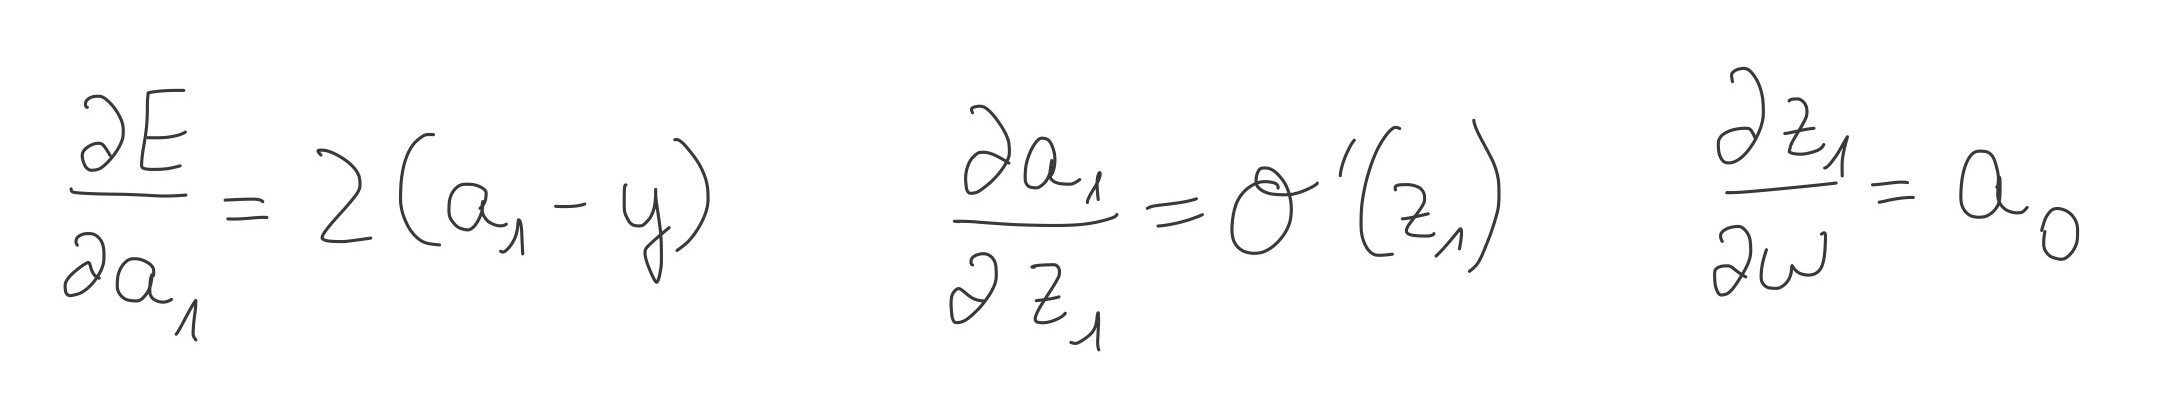 ∂E/∂a₁ = 2(a₁ - y)   ∂a₁/∂z₁ = σ'(z₁)   ∂z₁/∂w = a₀